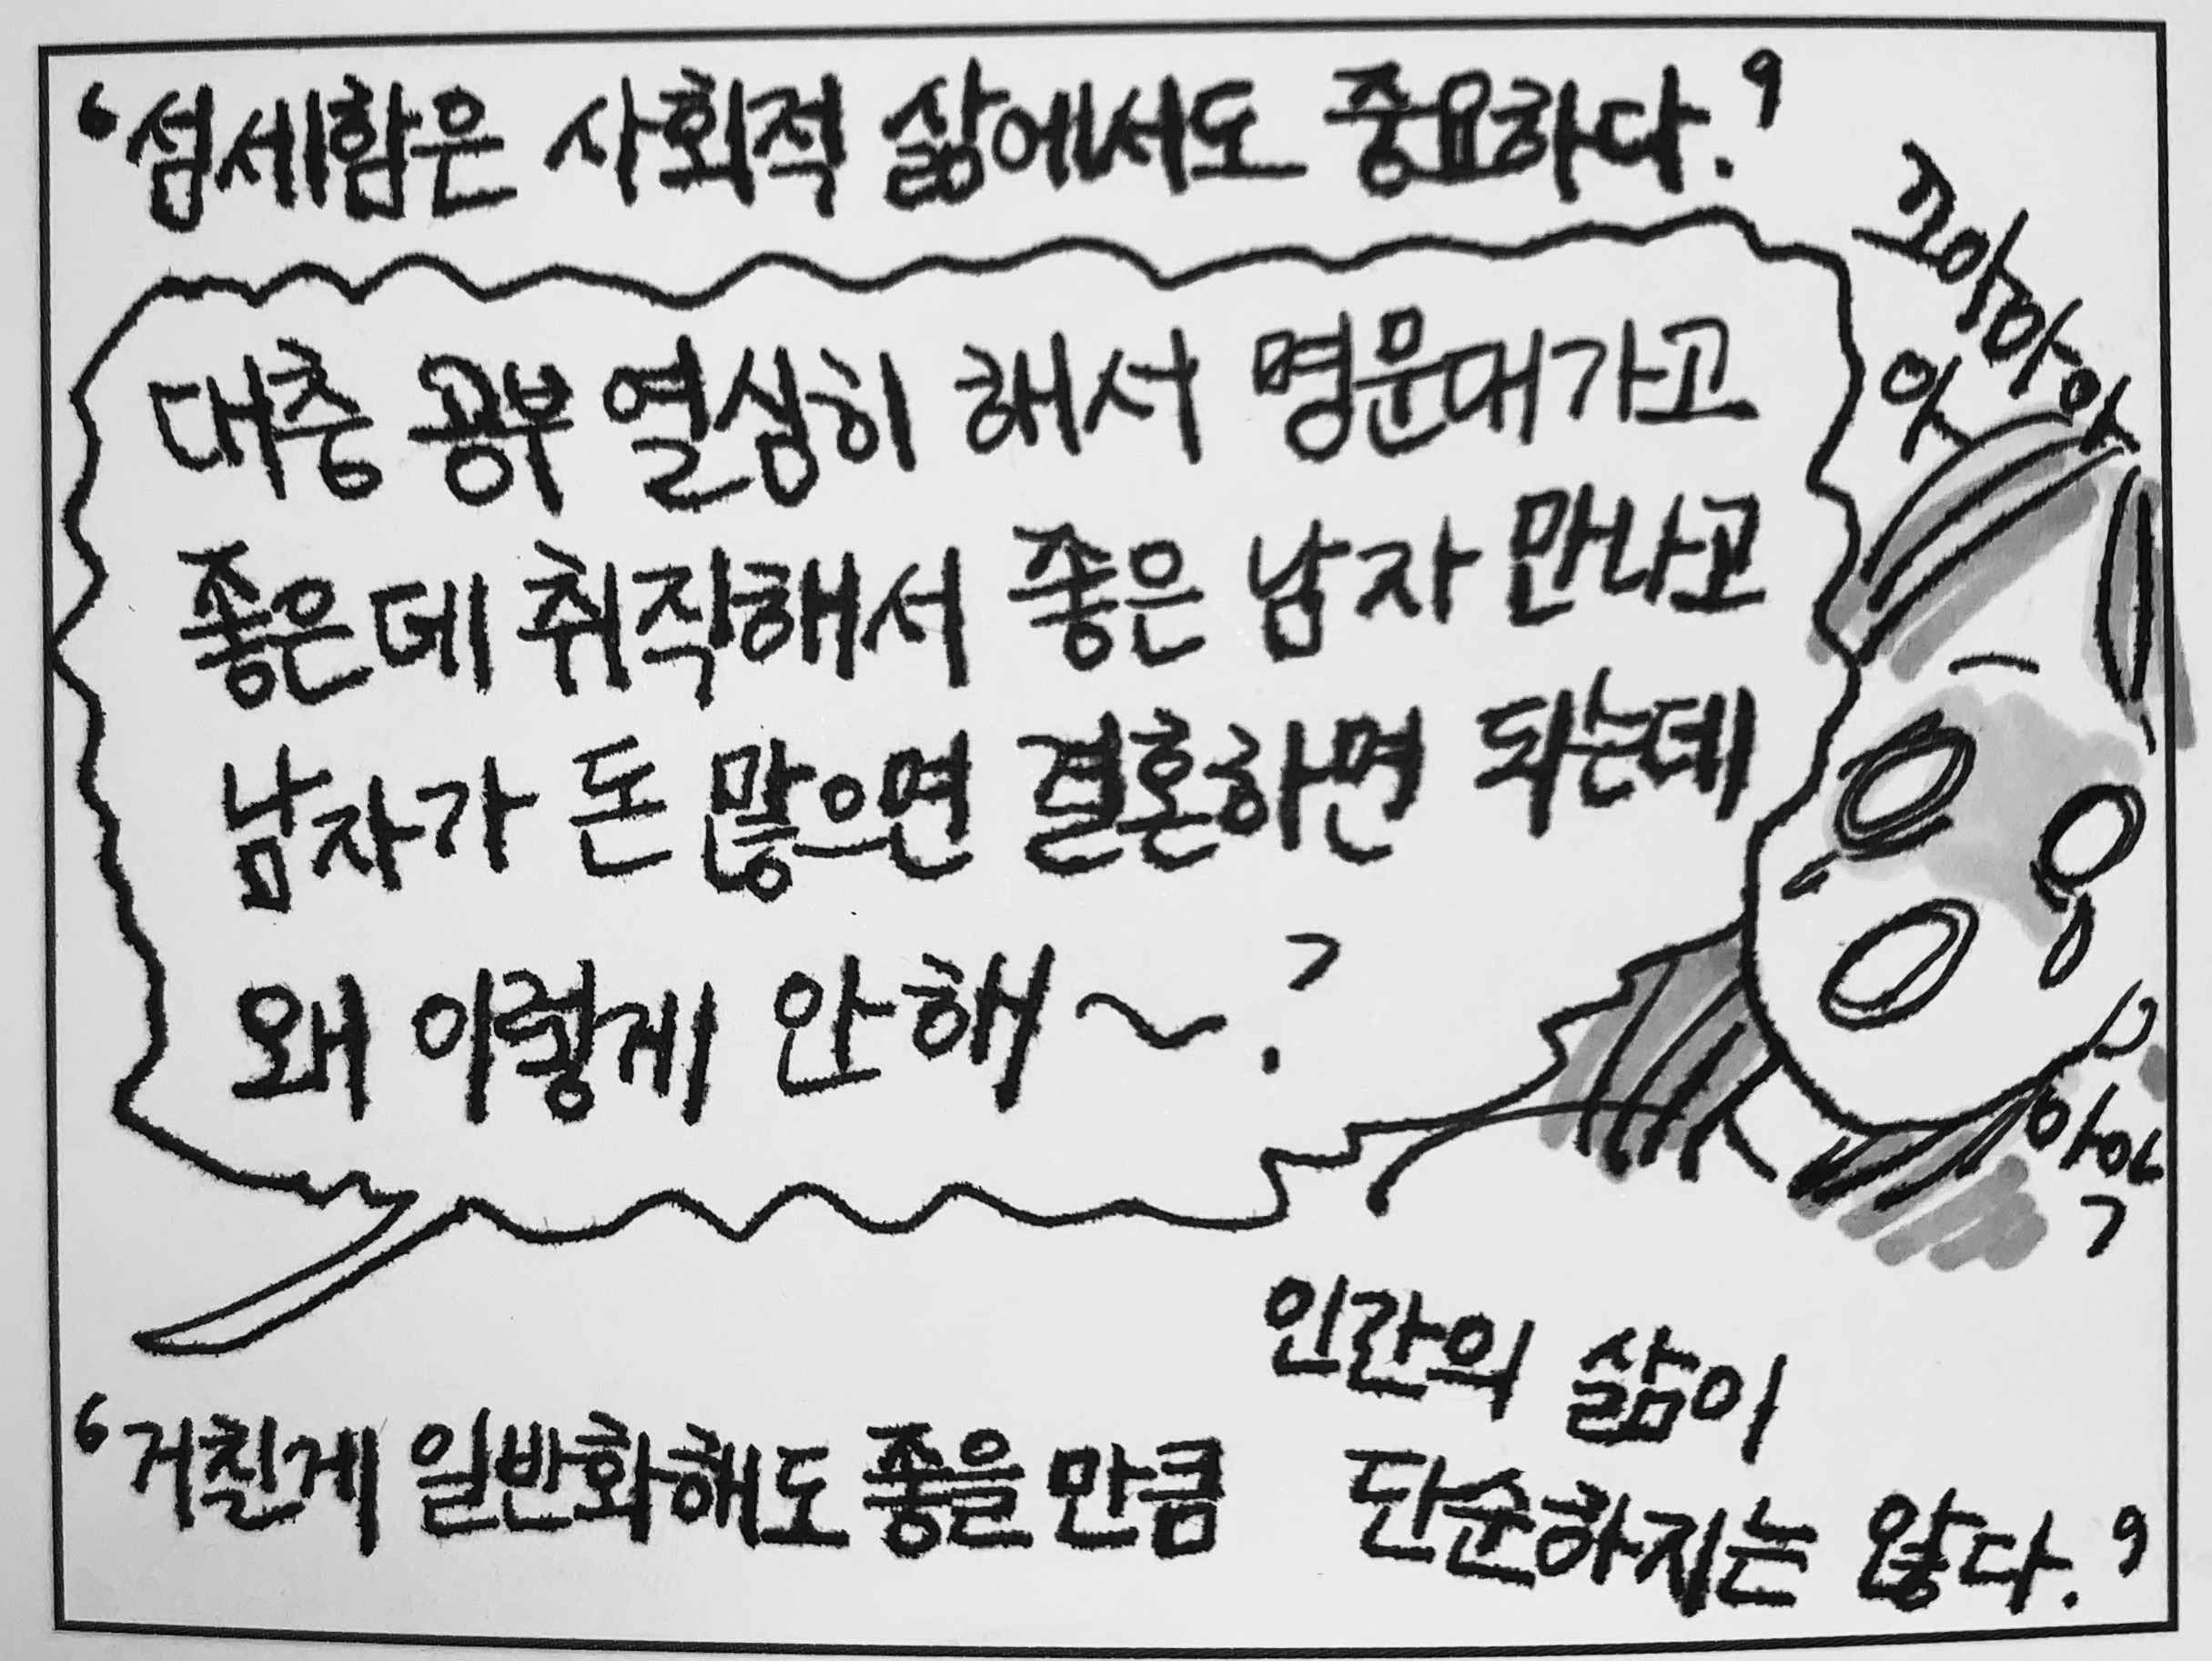 '섬세함은 사회적 삶에서도 중요하다.'
끄아아아악
대충 공부 열심히 해서 명문대가고
좋은데 취직해서 좋은 남자 만나고
남자가 돈 많으면 결혼하면 되는데
왜 이렇게 안 해~?
인간의 삶이
'거칠게 일반화해도 좋을만큼 단순하지는 않다.'